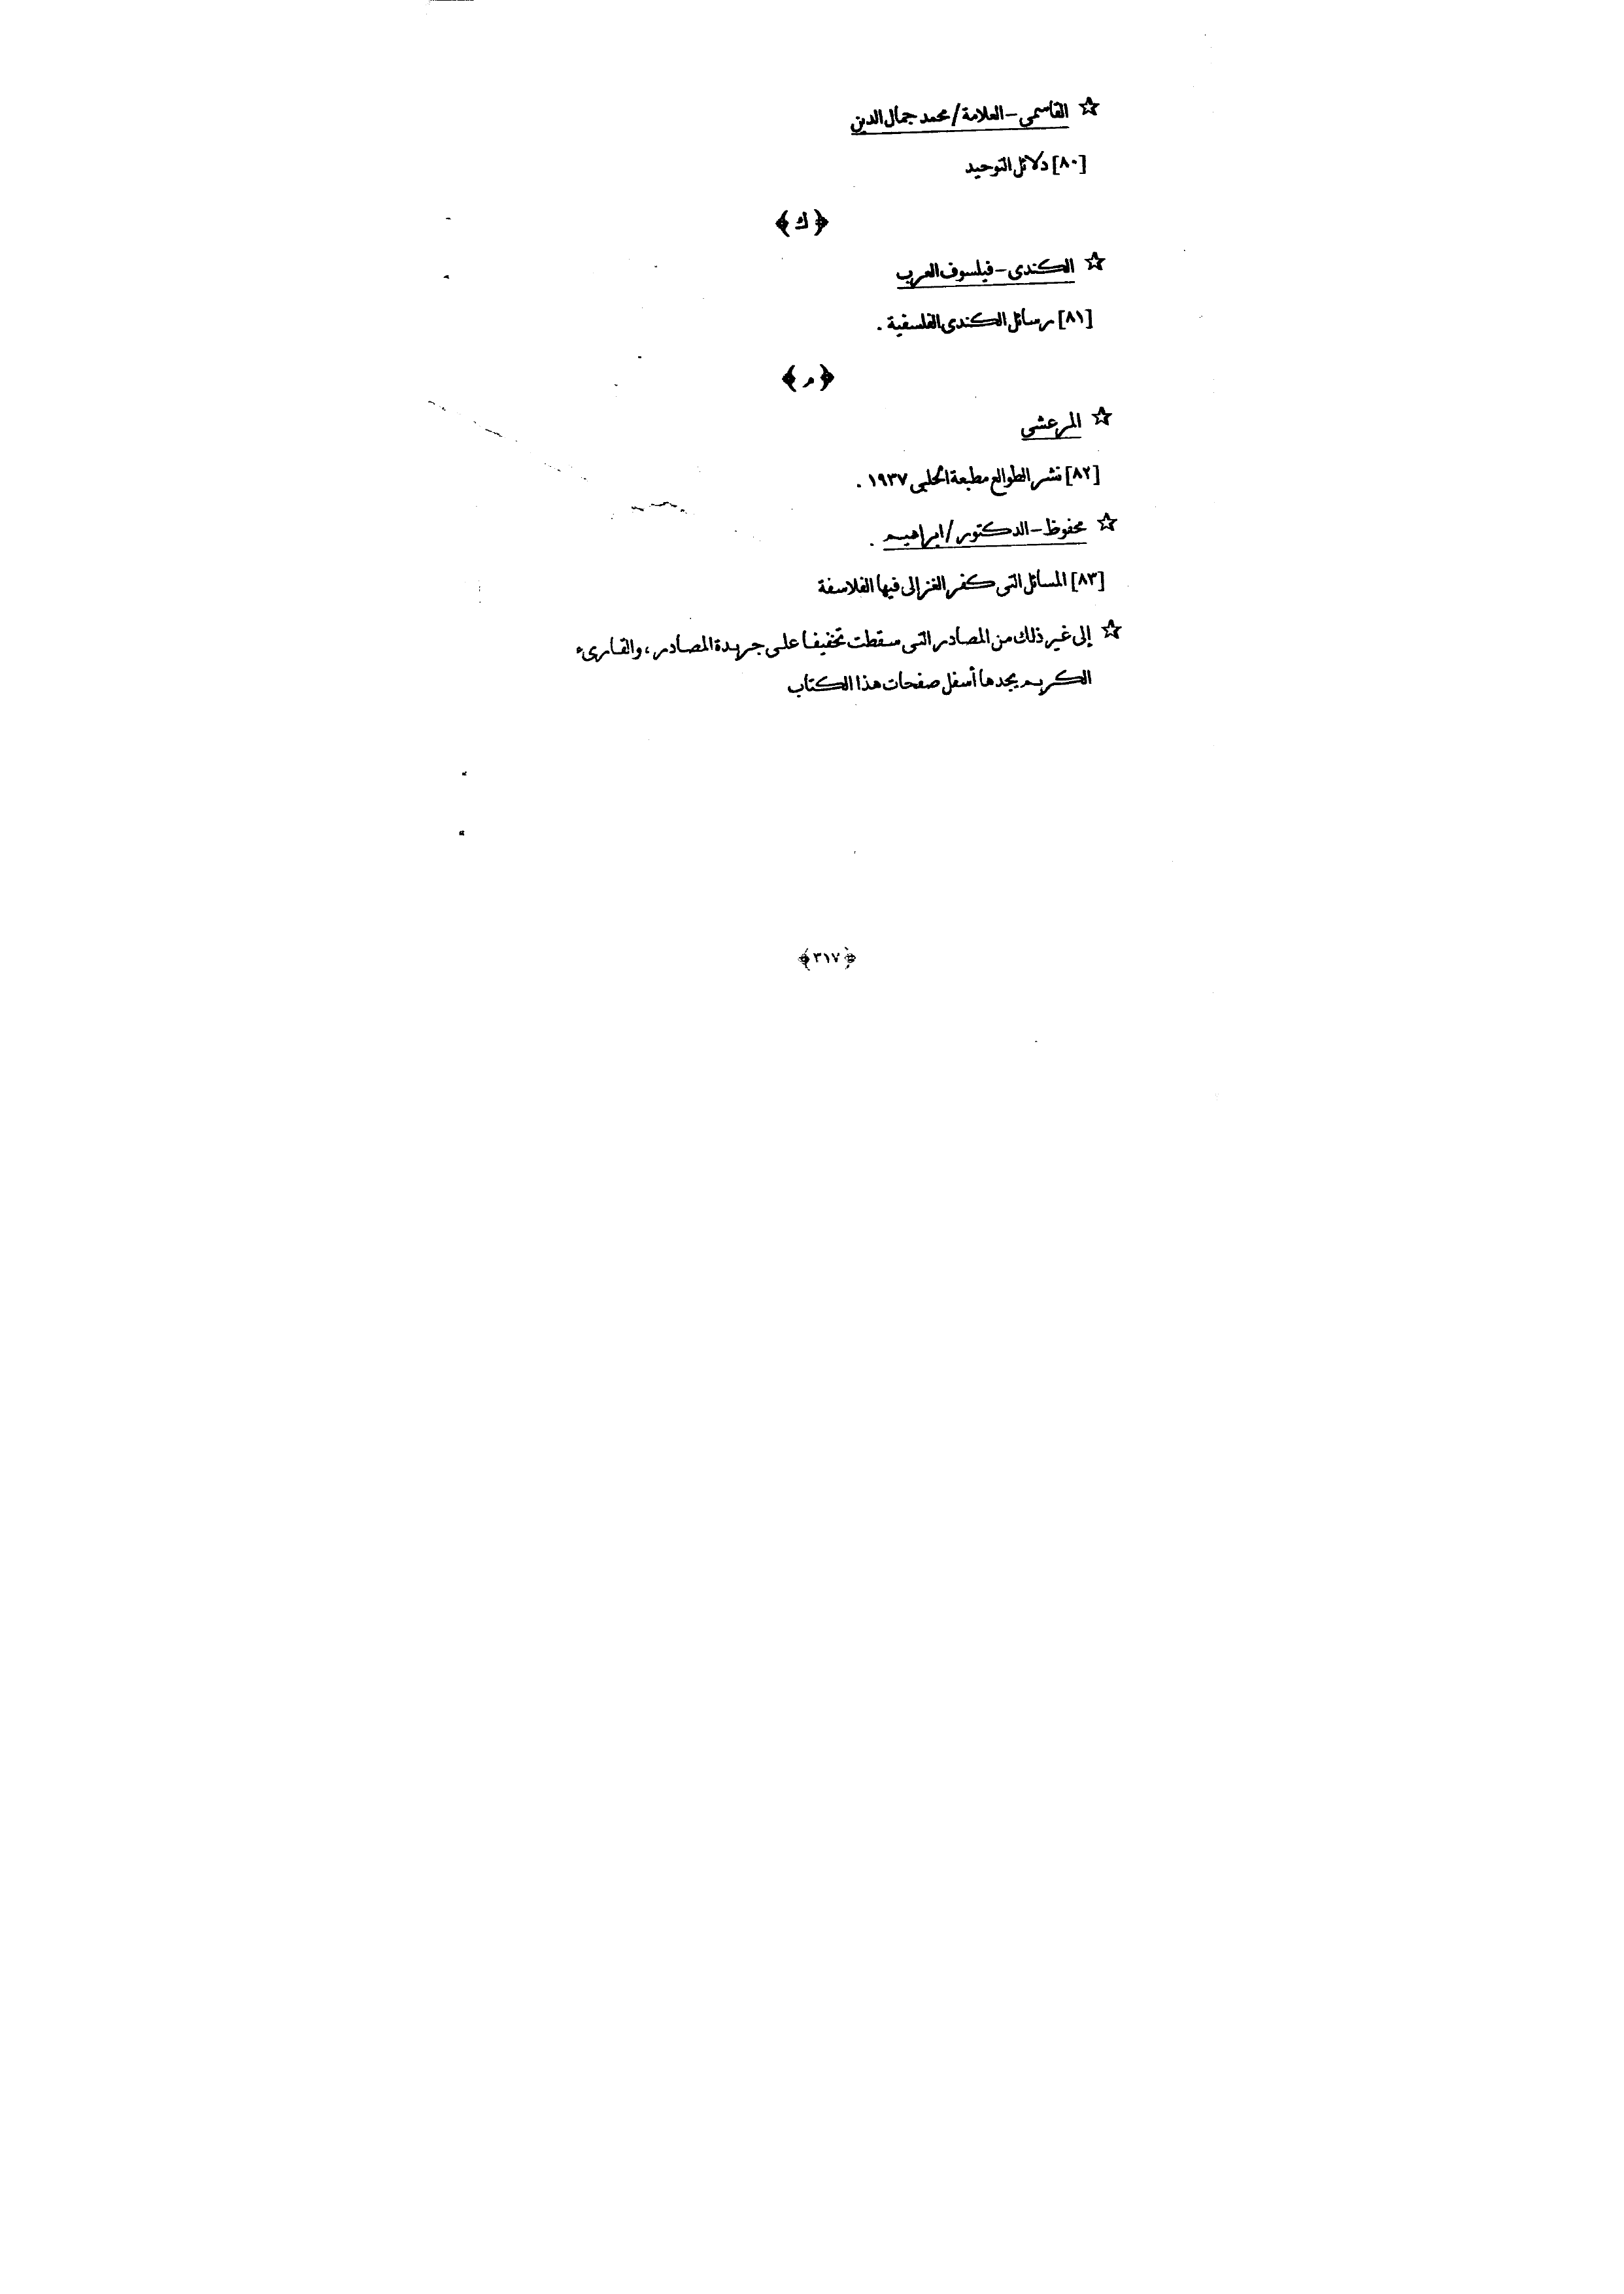 ☆ القاسمى – العلامة / محمد جمال الدين
[٨٠] دلائل التوحيد
﴿ ك ﴾
☆ الكندى – فيلسوف العرب
[٨١] رسائل الكندى الفلسفية .
﴿ م ﴾
☆ المرعشى
[٨٢] نشر الطوالع مطبعة الحلبى ١٩٣٧ .
☆ محفوظ – الدكتور / ابراهيم .
[٨٣] المسائل التى كفر الغزالى فيها الفلاسفة
☆ إلى غير ذلك من المصادر التى سقطت تخفيفا على جريدة المصادر ، والقارىء
الكريم يجدها أسفل صفحات هذا الكتاب
﴿ ٣١٧ ﴾